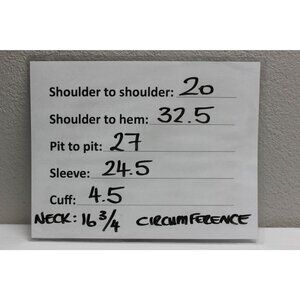 Shoulder to shoulder: 20
Shoulder to hem: 32.5
Pit to pit: 27
Sleeve: 24.5
Cuff: 4.5
NECK: 16 3/4 CIRCUMFERENCE